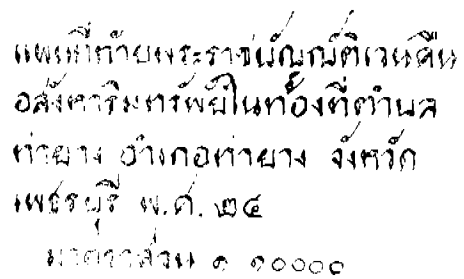 แผนที่ท้ายพระราชบัญญัติเวนคืน
อสังหาริมทรัพย์ในท้องที่ตำบล
ท่ายาง อำเภอท่ายาง จังหวัด
เพชรบุรี พ.ศ. ๒๔
มาตราส่วน ๑ ๑๐๐๐๐